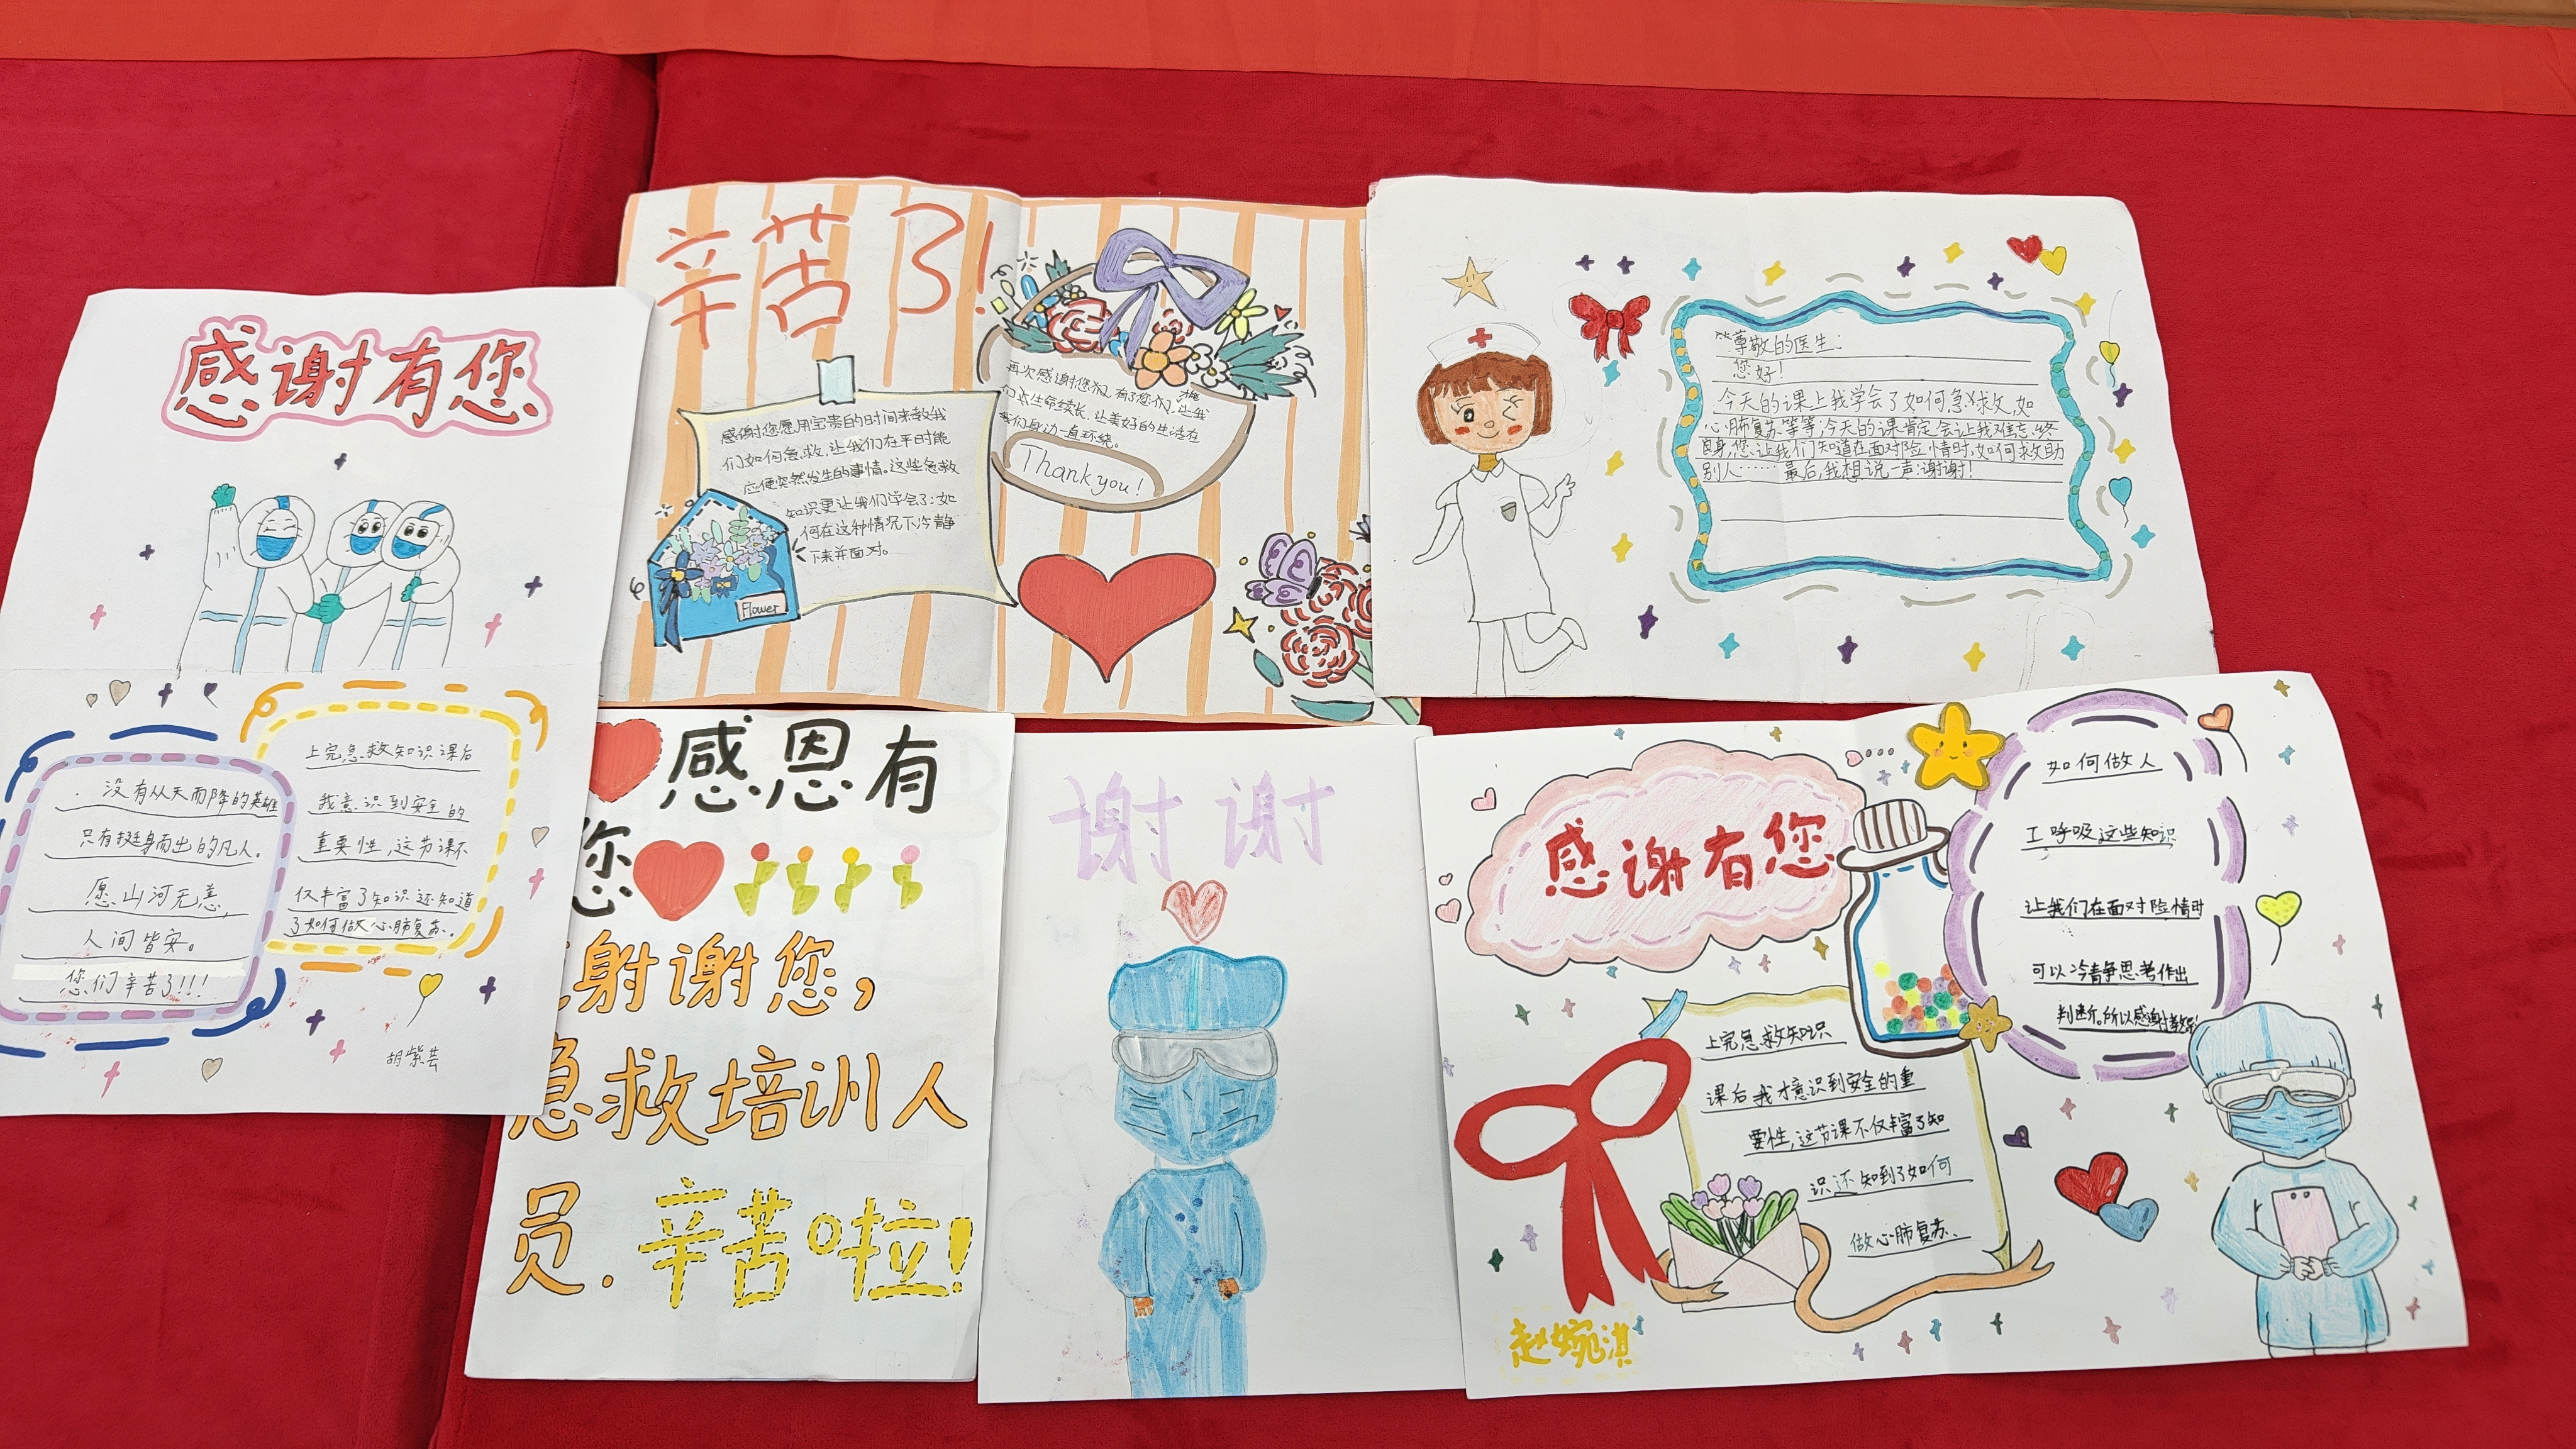 感谢有您
没有从天而降的英雄
只有挺身而出的凡人。
愿山河无恙,
人间皆安。
您们辛苦了!!!
上完急救知识课后
我意识到安全的
重要性,这节课不
仅丰富了知识还知道
了如何做心肺复苏。
胡紫芸
辛苦了!
感谢您愿用宝贵的时间来教我
们如何急救,让我们在平时能
应便突然发生的事情。这些急救
知识更让我们学会了:如
何在这种情况下冷静
下来并面对。
Flower
再次感谢您们,有了您们,让我
们生命续长,让美好的生活在
我们身边一直环绕。
Thank you!
尊敬的医生:
您好!
今天的课上我学会了如何急救,如
心肺复苏等等,今天的课肯定会让我难忘终
身,您让我们知道在面对险情时,如何救助
别人……最后,我想说一声:谢谢!
感恩有
您
谢谢您,
急救培训人
员.辛苦啦!
谢谢
感谢有您
上完急救知识
课后我才意识到安全的重
要性,这节课不仅丰富了知
识还知到了如何
做心肺复苏、
如何做人
工呼吸这些知识
让我们在面对险情时
可以冷静思考作出
判断。所以感谢
赵婉淇